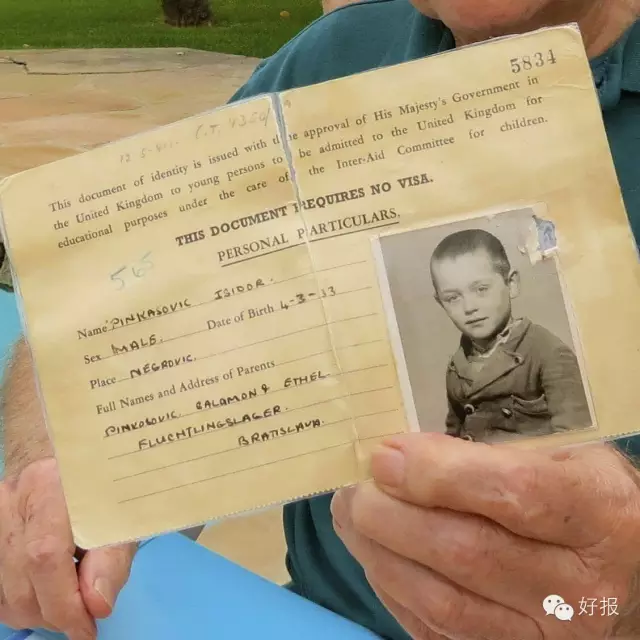 5834
12.5.
This document of identity is issued with the approval of His Majesty's Government in
the United Kingdom to young persons to be admitted to the United Kingdom for
educational purposes under the care of the Inter-Aid Committee for children.
THIS DOCUMENT REQUIRES NO VISA.
PERSONAL PARTICULARS.
565
Name PINKASOVIC ISIDOR.
Sex MALE. Date of Birth 4-3-33
Place NEGROVIC.
Full Names and Address of Parents
PINKOLOVIC SALAMON & ETHEL
FLUCHTLINGSLAGER.
BRATISLAVA.
好报